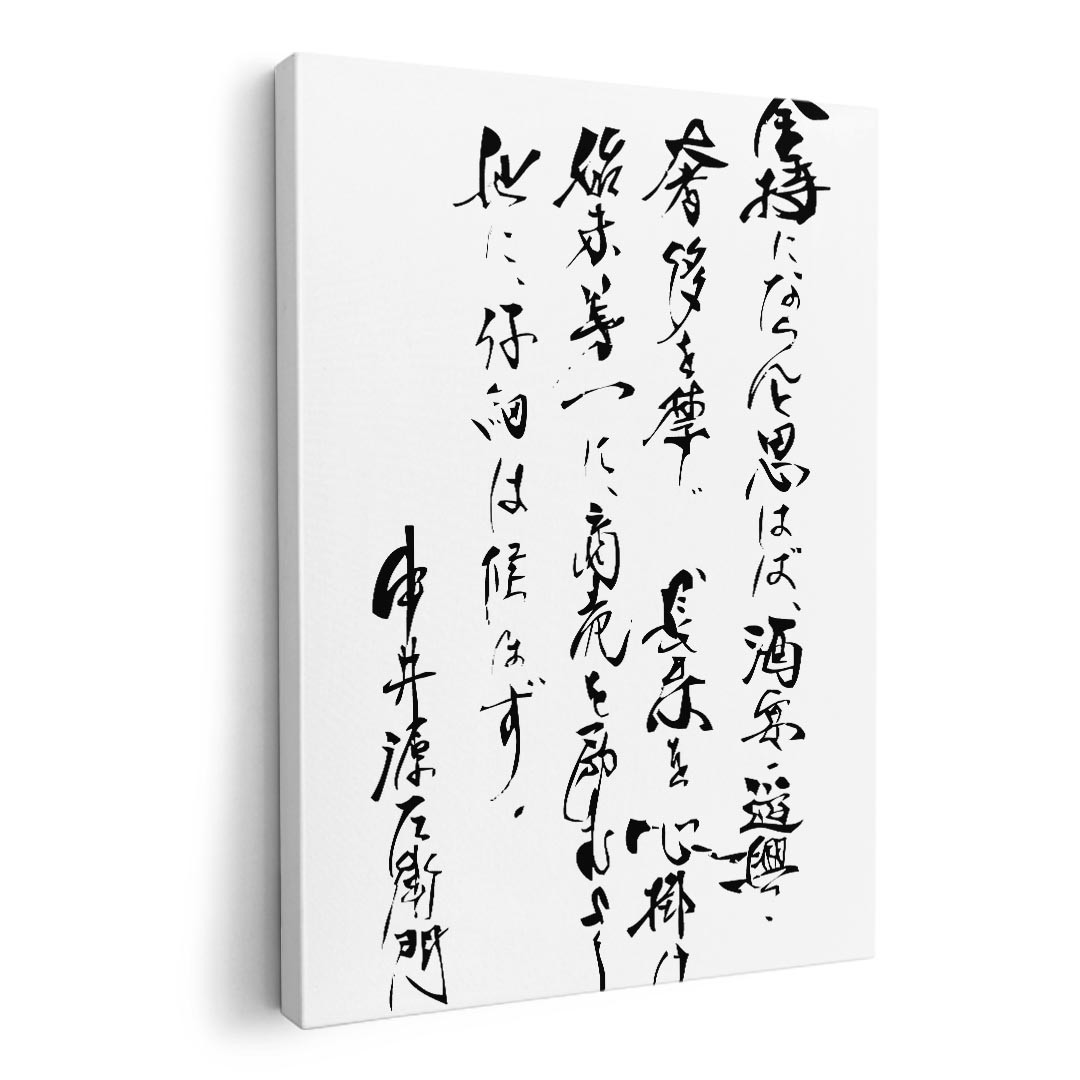 金持にならんと思はば、酒宴・遊興・
奢侈を禁じ 長寿を心掛け
始末第一に、商売を励むより
他に、仔細は候はず。
中井源左衛門